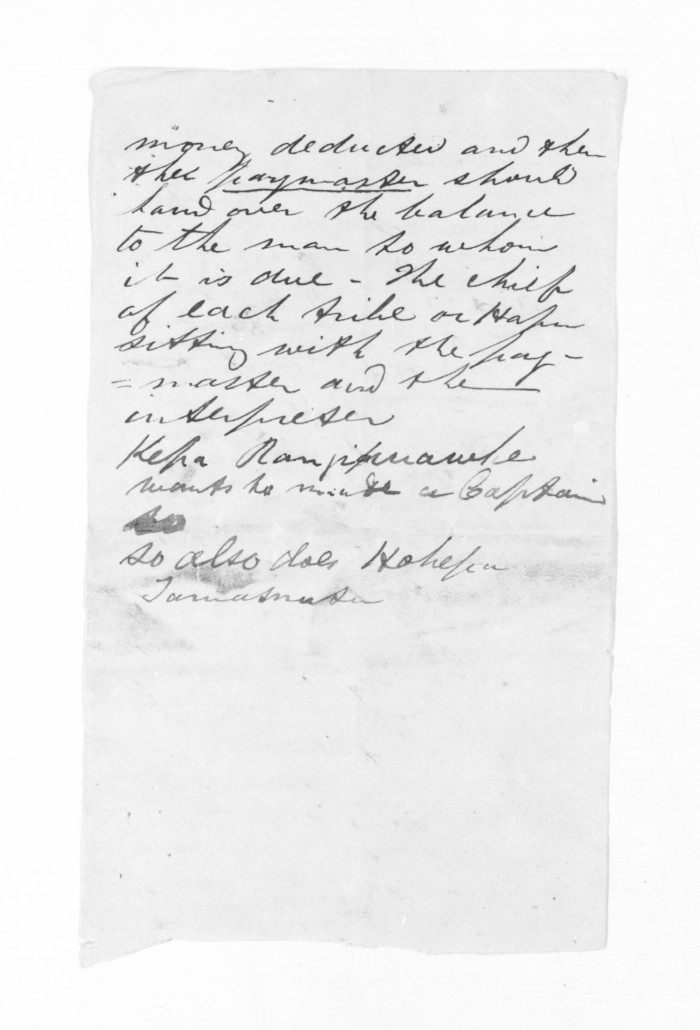 money deducted and then
the paymaster should
hand over the balance
to the man to whom
it is due - The chief
of each tribe or Hapu
sitting with the pay-
=master and the
interpreter
Kepa
wants to made a Captain
so
so also does Hohepa
Tamamutu